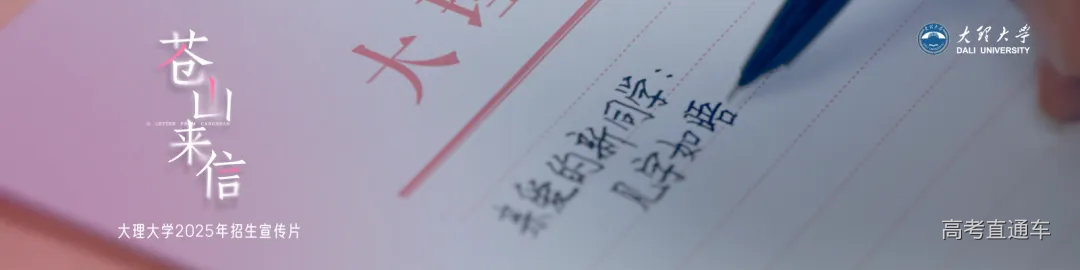 苍山来信
A LETTER FROM CANGSHAN
大理大学2025年招生宣传片
大理
亲爱的新同学：
见字如晤
大理大学
DALI UNIVERSITY
高考直通车